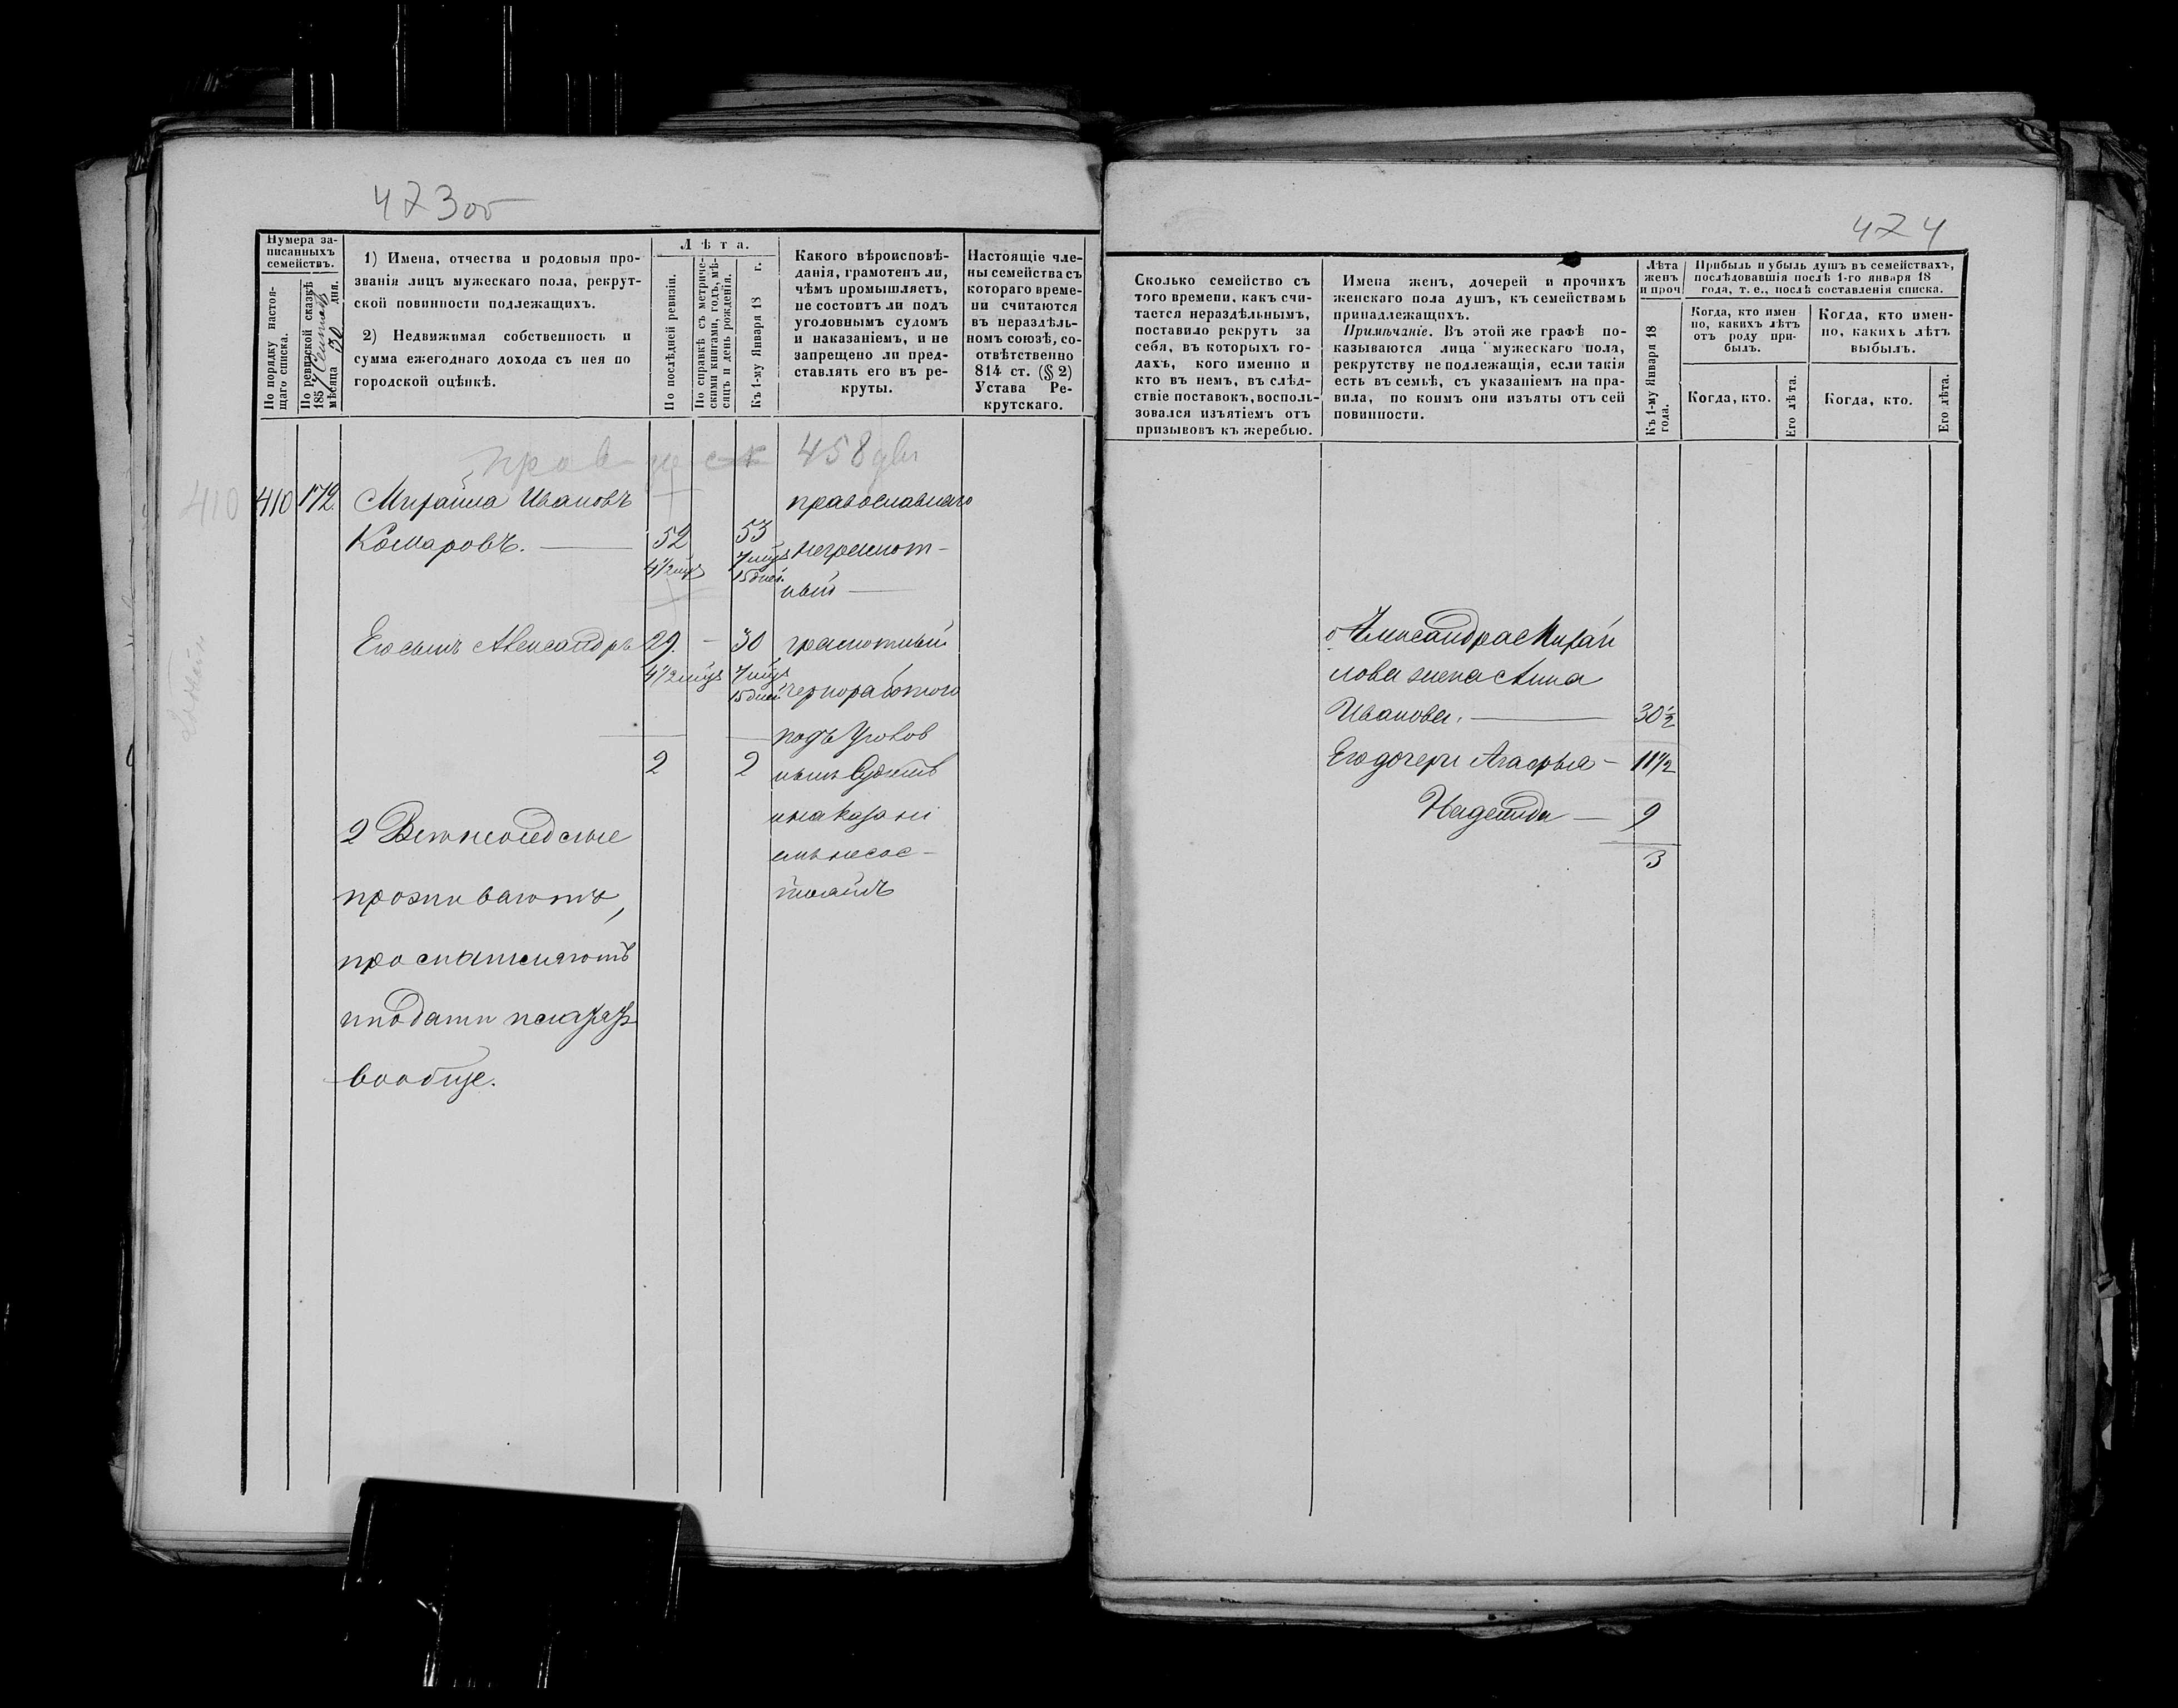 473об
Нумера за-
писанныхъ
семействъ.
По порядку настоя-
щаго списка.
По ревизской сказкѣ
1857
мѣсяца 30 дня.
1) Имена, отчества и родовыя про-
званія лицъ мужескаго пола, рекрут-
ской повинности подлежащихъ.
2) Недвижимая собственность и
сумма ежегоднаго дохода съ нея по
городской оцѣнкѣ.
Лѣта.
По послѣдней ревизіи.
По справкѣ съ метриче-
скими книгами, годъ, мѣ-
сяцъ и день рожденія.
Къ 1-му Января 18 г.
Какого вѣроисповѣ-
данія, грамотенъ ли,
чѣмъ промышляетъ,
не состоитъ ли подъ
уголовнымъ судомъ
и наказаніемъ, и не
запрещено ли пред-
ставлять его въ ре-
круты.
Настоящіе чле-
ны семейства съ
котораго време-
ни считаются
въ нераздѣль-
номъ союзѣ, со-
отвѣтственно
814 ст. (§ 2)
Устава Ре-
крутскаго.
458
410 410 172. Михайла Ивановъ православнаго
Комаровъ. 52 53 неграмот-
4½ мѣс 7 мѣс 15 дней ный
Его сынъ Александръ 29. - 30 грамотный
4½ мѣс 7 мѣс 15 дней чернорабочаго
подъ Уголов
2 2 нымъ Судомъ
и наказані
2
емъ не сос-
проживаютъ,
тоятъ
промышляютъ
вообще.
474
Сколько семейство съ
того времени, какъ счи-
тается нераздѣльнымъ,
поставило рекрутъ за
себя, въ которыхъ го-
дахъ, кого именно и
кто въ немъ, въ слѣд-
ствіе поставокъ, восполь-
зовался изъятіемъ отъ
призывовъ къ жеребью.
Имена женъ, дочерей и прочихъ
женскаго пола душъ, къ семействамъ
принадлежащихъ.
Примѣчаніе. Въ этой же графѣ по-
казываются лица мужескаго пола,
рекрутству не подлежащія, если такія
есть въ семьѣ, съ указаніемъ на пра-
вила, по коимъ они изъяты отъ сей
повинности.
Лѣта
женъ
и проч
Къ 1-му Января 18
года.
Прибыль и убыль душъ въ семействахъ,
послѣдовавшія послѣ 1-го января 18
года, т. е., послѣ составленія списка.
Когда, кто имен
но, какихъ лѣтъ
отъ роду при-
былъ.
Когда, кто имен-
но, какихъ лѣтъ
выбылъ.
Когда, кто.
Его лѣта.
Когда, кто.
Его лѣта.
Александра Михай
лова жена Анна
Иванова. 30½
Его дочери Агафья - 11½
Надежда - 9
3